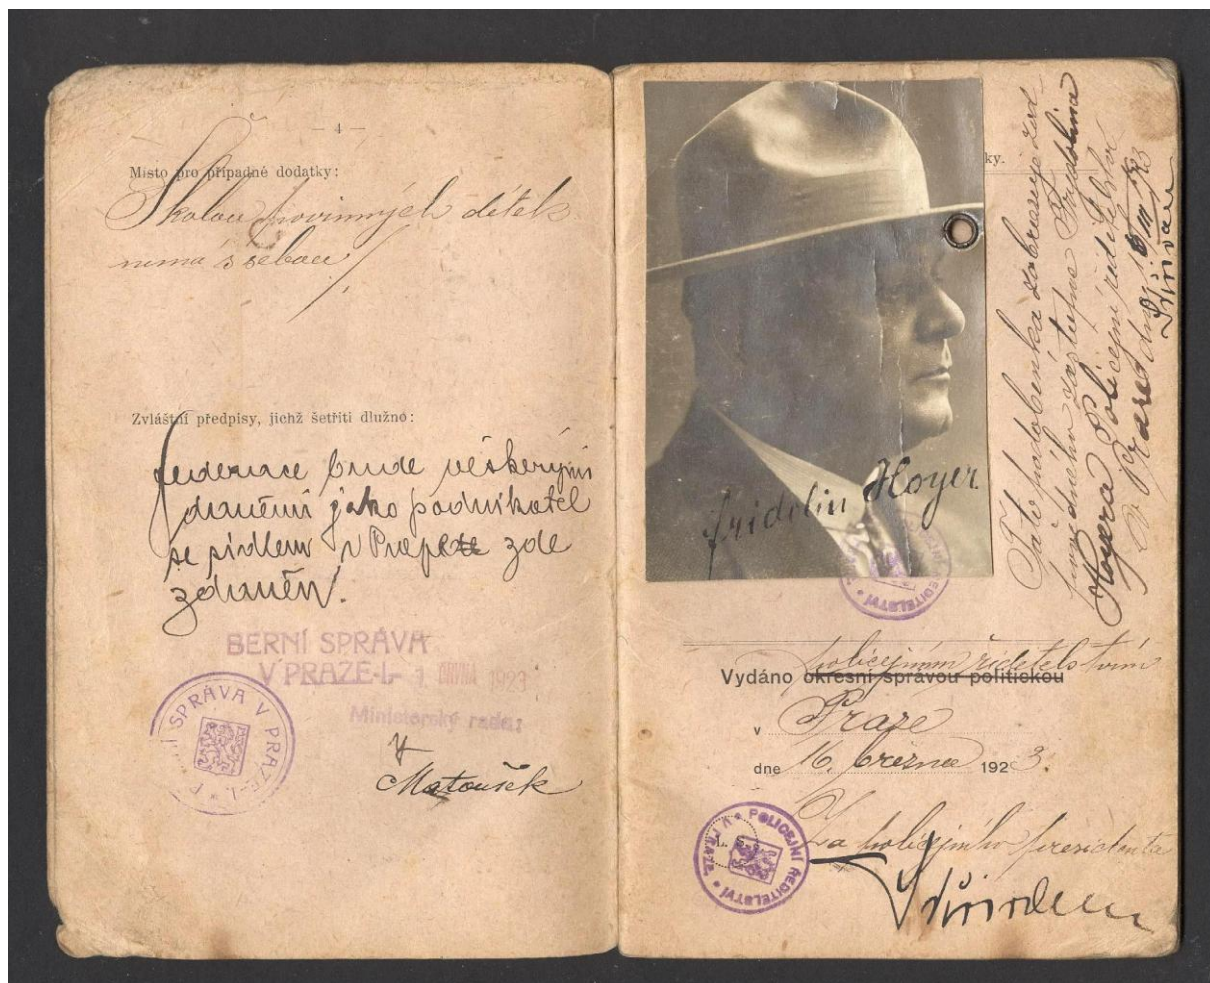 — 4 —
Místo pro případné dodatky:
Školou povinných dítek
nemá s sebou
Zvláštní předpisy, jichž šetřiti dlužno:
federace bude veškerými
daněmi jako podnikatel
se sídlem v Praze zde
zdaněn.
BERNÍ SPRÁVA
V PRAZE-I.
1 1923
Ministerský rada:
SPRÁVA V PRAZE-I.
Matoušek
ky.
Tato podobenka zobrazuje
Fridolina
Hoyera Policejní ředitelství
v Praze dne
Fridolin Hoyer
ŘEDITELSTVÍ
policejním ředitelstvím
Vydáno okresní správou politickou
v Praze
dne 16. března 1923.
Za policejního presidenta
POLICEJNÍ ŘEDITELSTVÍ V PRAZE